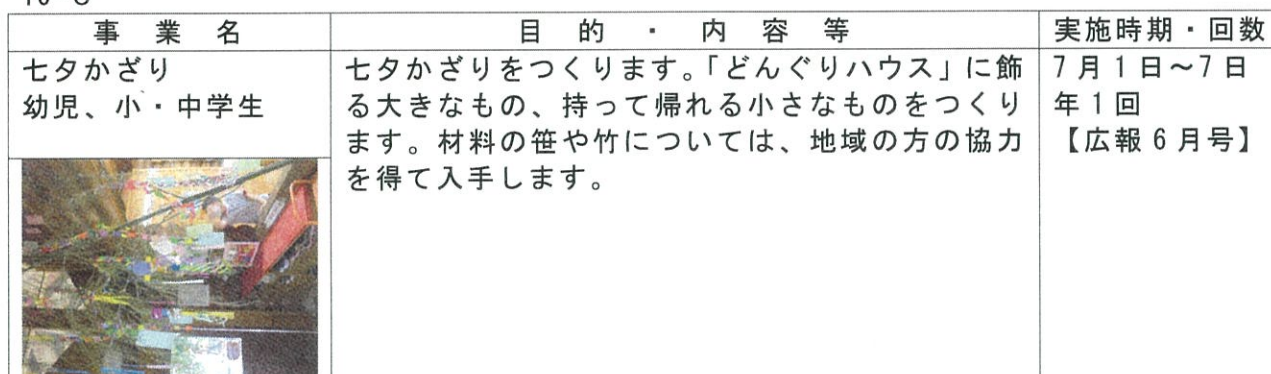 事業名
目的・内容等
実施時期・回数
七夕かざり
幼児、小・中学生
七夕かざりをつくります。「どんぐりハウス」に飾
る大きなもの、持って帰れる小さなものをつくり
ます。材料の笹や竹については、地域の方の協力
を得て入手します。
7月1日～7日
年1回
【広報6月号】